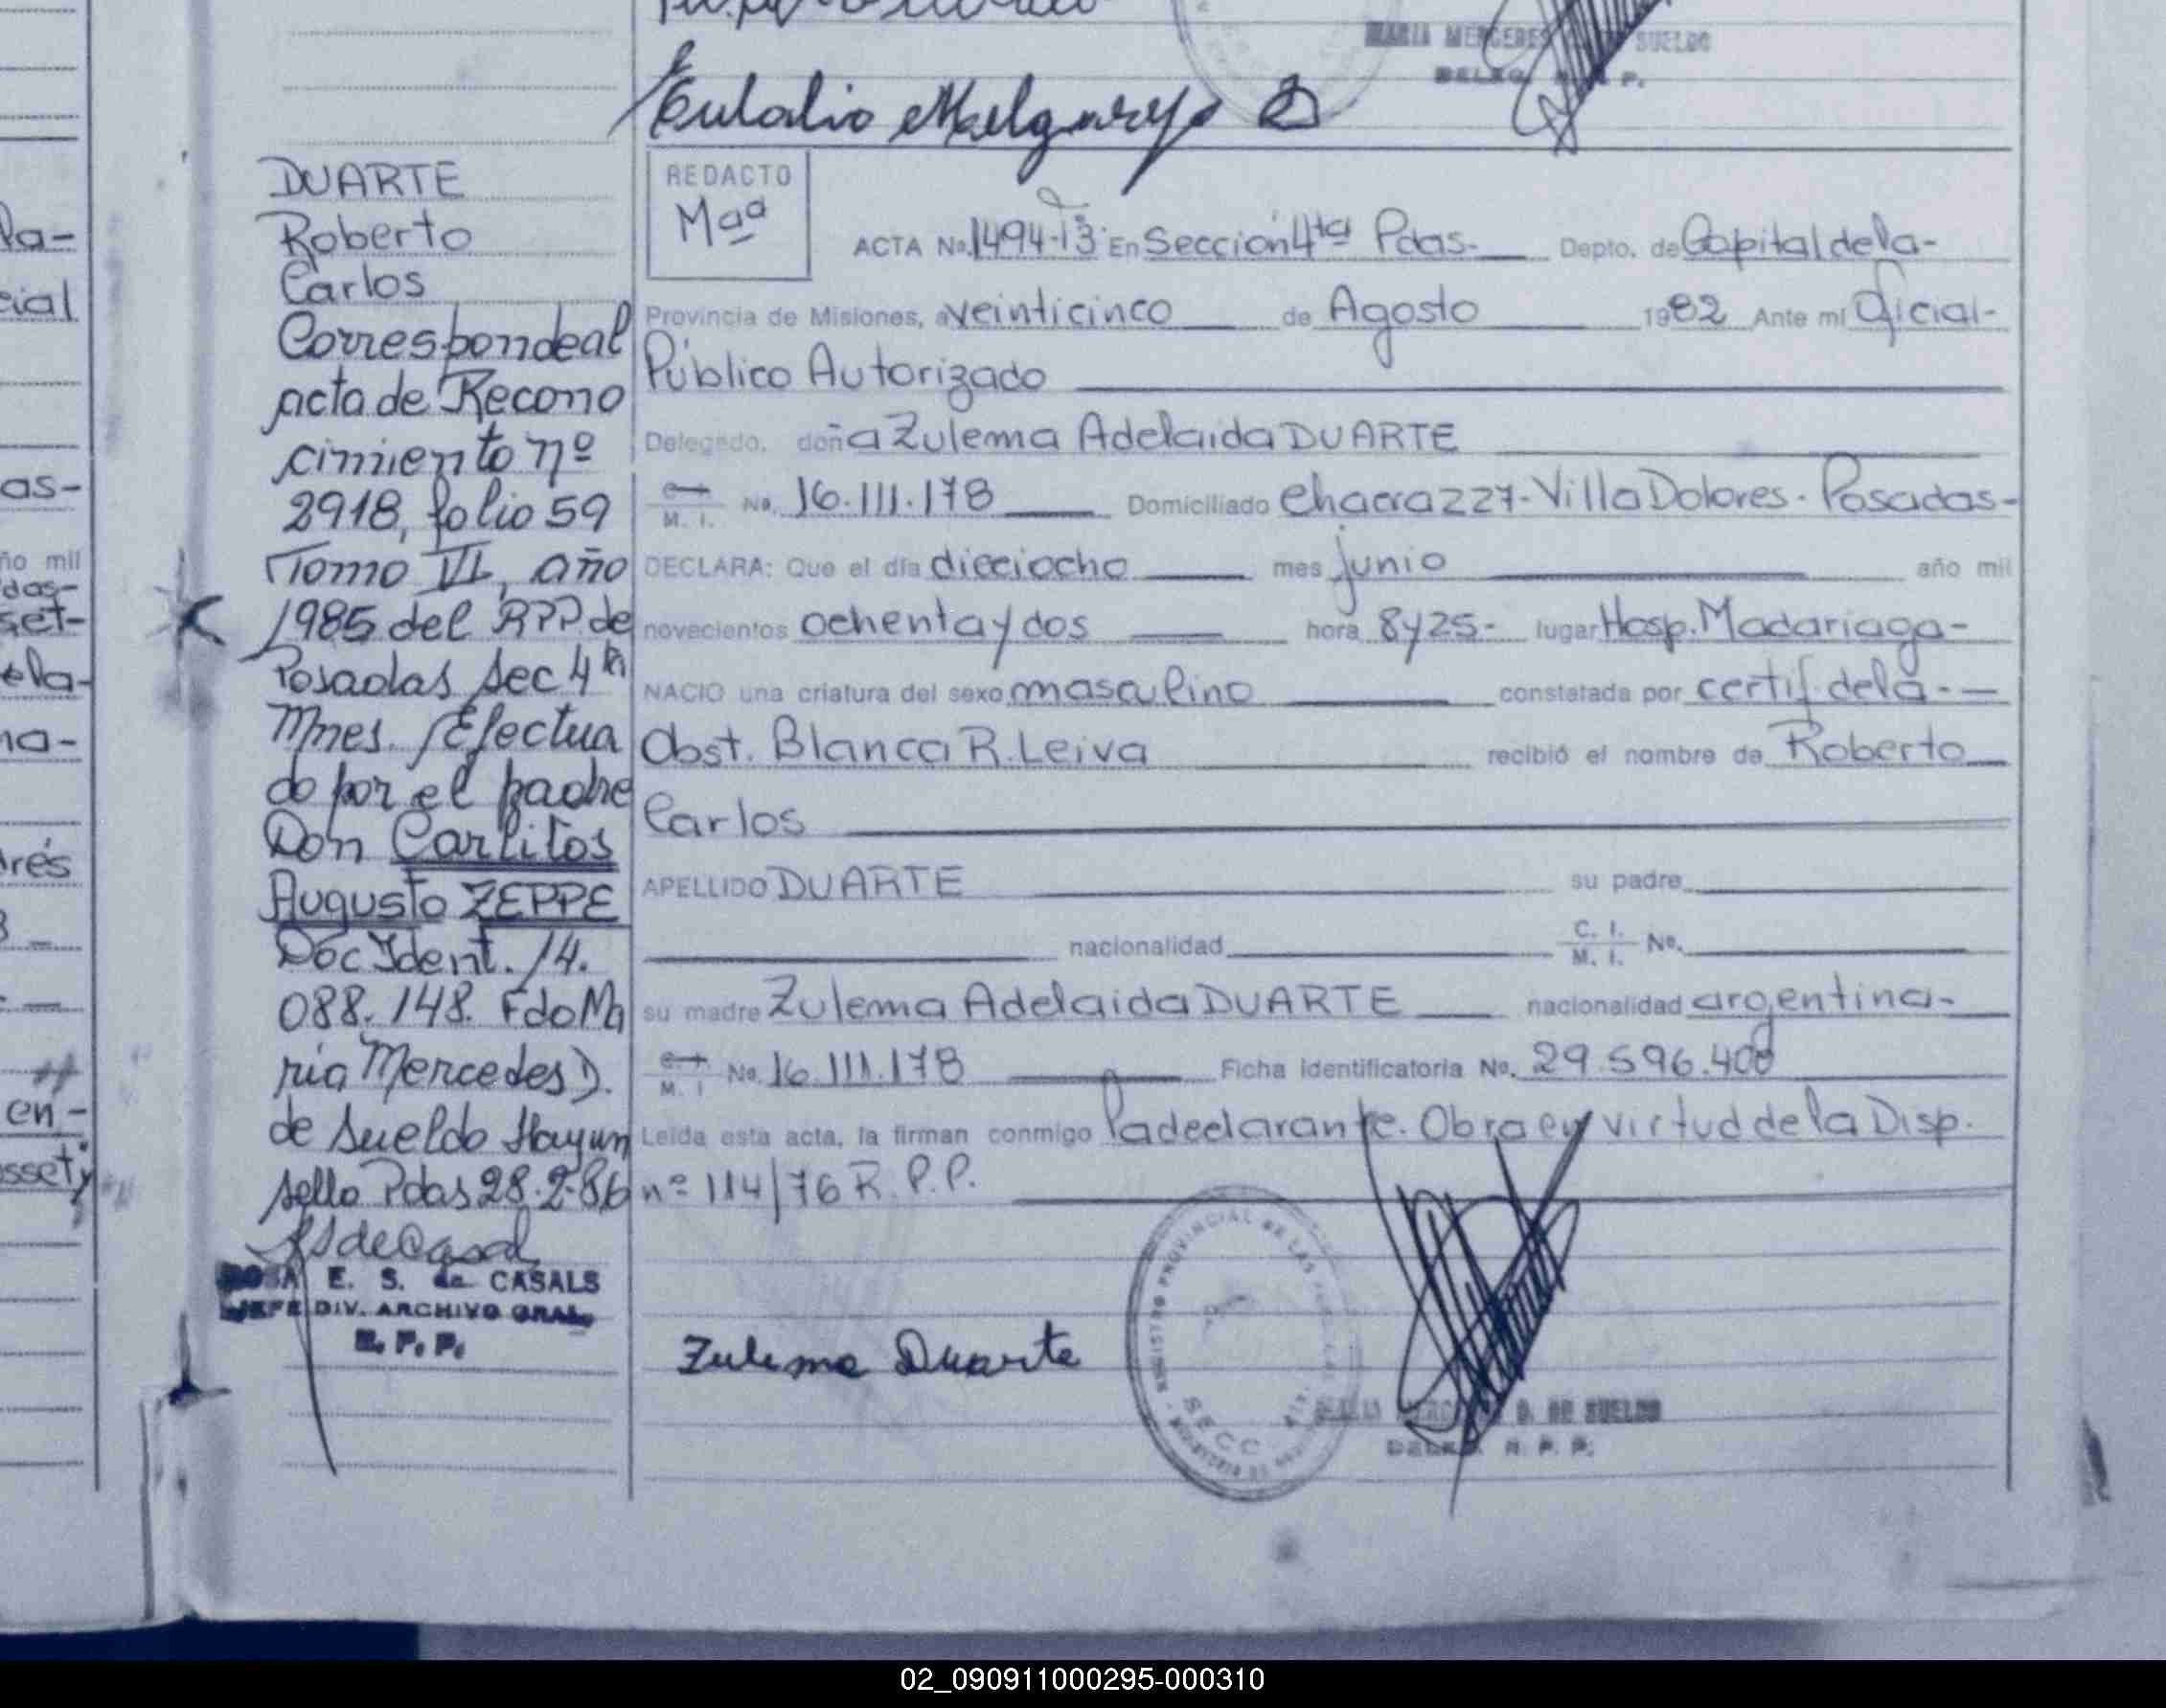 Eulalio Melgarejo
MARIA MERCEDES D. DE SUELDO
DELEG. R. P. P.
DUARTE
Roberto
Carlos
Correspondeal
acta de Recono
cimiento nº
2918, folio 59
Tomo VI, año
1985 del RPP de
Posadas Sec 4ta
Mnes. Efectua
do por el padre
Don Carlitos
Augusto ZEPPE
Doc Ident. 14.
088.148. Fdo Ma
ria Mercedes D.
de Sueldo Hay un
sello Pdas 28-2-86
ROSA E. S. de CASALS
JEFE DIV. ARCHIVO GRAL.
R. P. P.
REDACTO
Mªª
ACTA No. 1494-T3º En Sección 4ta Pdas. Depto. de Capital de la-
Provincia de Misiones, a veinticinco de Agosto 1982 Ante mi Oficial-
Público Autorizado
Delegado, doña Zulema Adelaida DUARTE
C. I. M. I. No. 16.111.178 Domiciliado Chacra 227-Villa Dolores-Posadas-
DECLARA: Que el día dieciocho mes junio año mil
novecientos ochenta y dos hora 8y25- lugar Hosp. Madariaga-
NACIO una criatura del sexo masculino constatada por certif. de la-
Obst. Blanca R. Leiva recibió el nombre de Roberto
Carlos
APELLIDO DUARTE su padre
nacionalidad C. I. M. I. No.
su madre Zulema Adelaida DUARTE nacionalidad argentina-
C. I. M. I No. 16.111.178 Ficha identificatoria No. 29.596.408
Leída esta acta, la firman conmigo la declarante. Obra en virtud de la Disp.
nº 114/76 R.P.P.
Zulema Duarte
REGISTRO PROVINCIAL DE LAS
SECC. 4ta.
MARIA MERCEDES D. DE SUELDO
DELEG. R. P. P.
la-
cial
as-
ño mil
das-
set-
ela-
na-
drés
en-
ssety
02_090911000295-000310